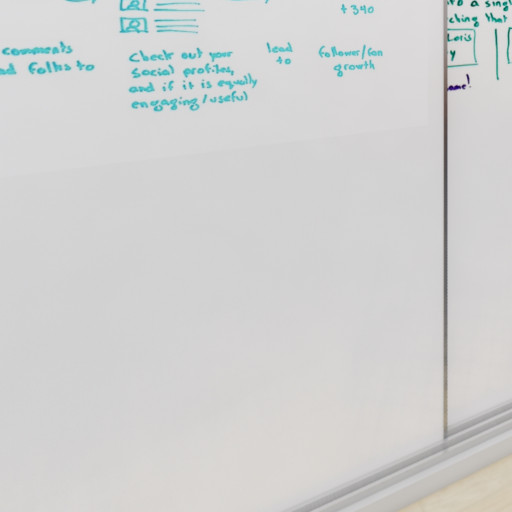 +340
comments
folks to
Check out your
social profiles,
and if it is equally
engaging/useful
lead
to
follower/fan
growth
a singl
ching that
y